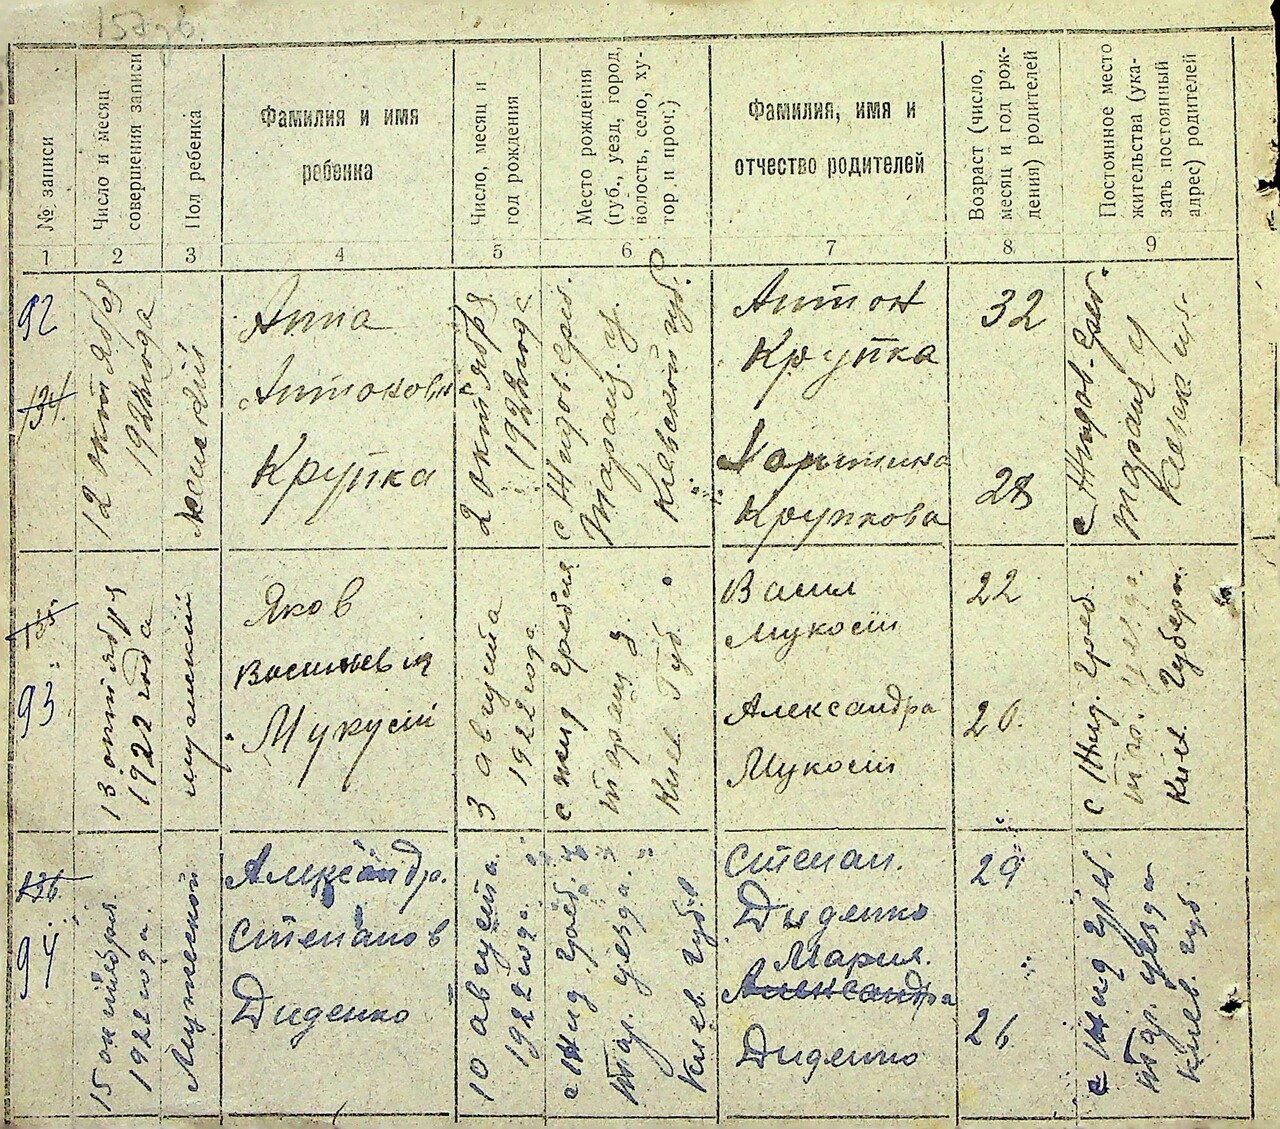 157 зв.
№ записи
Число и месяц
совершения записи
Пол ребенка
Фамилия и имя
ребенка
Число, месяц и
год рождения
Место рождения
(губ., уезд, город,
волость, село, ху-
тор и проч.)
Фамилия, имя и
отчество родителей
Возраст (число,
месяц и год рож-
дения) родителей
Постоянное место
жительства (ука-
зать постоянный
адрес) родителей
1 2 3 4 5 6 7 8 9
92
134
12 октября
1922 года
Анна
Антоновн
Крупка
2 октября
1922 года
с Жидов. Греб.
Таращ. у.
Киевской губ.
Антон
Крупка
Крупкова
32
28
с Жидов. Греб.
Таращ у
Киевск губ.
93
13 октября
1922 года
мужский
Яков
Мукусій
3 августа
1922 года
с жид Гребля
таращ у.
Киев Губ.
Васил
Мукосій
Александра
Мукосій
22
20.
с Жид. Греб.
Киев Губерн.
136
94
15 октября.
1922 года.
Мужской
Александр.
Степанов
Диденко
10 августа.
1922 года.
с Жид. Греб.
Тар. уезда.
Киев. губ.
Степан.
Диденко
Мария.
Александра
Диденко
29
26
с Жид Греб.
Тар. уезда
Киев. губ.